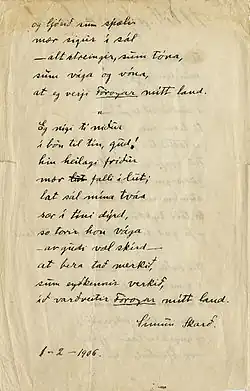 og ljósið sum spælir
mær sigur í sál
—alt streingir, sum tóna,
sum vága og vóna,
at eg verji Føroyar mítt land.
"
Eg nígi tí niður
í bøn til tín, gud!
hin heilagi friður
mær falli í lut;
lat sál mína tváa
sær í tíni dýrd,
so torir hon vága
—av gudi væl skírd—
at bera tað merkið,
sum eyðkennir verkið,
ið varðveitir Føroyar mítt land.
Símun Skarð.
1-2-1906.